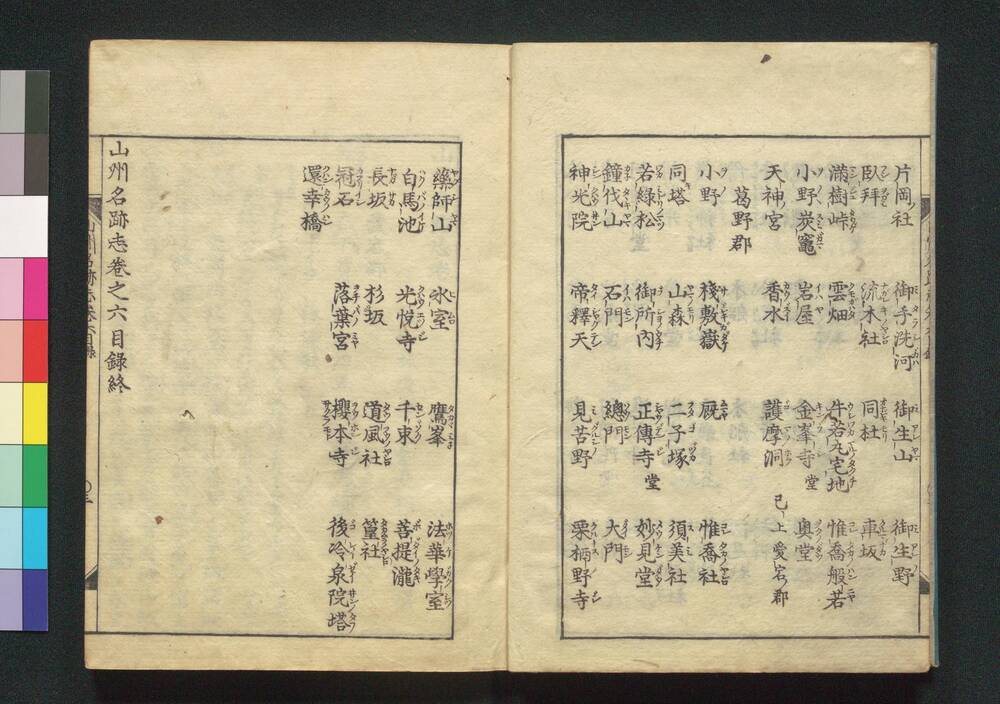 片岡社 御手洗河 御生山 御生野
臥拜 流木社 同社 車坂
滿樹峠 雲畑 牛若丸宅地 惟喬般若
小野炭竈 岩屋 金峯寺堂 奥堂
天神宮 香水 護摩洞 已上愛宕郡
葛野郡
小野 棧敷嶽 厩 惟喬社
同塔 山森 二子塚 須美社
若綠松 御所内 正傳寺堂 妙見堂
鐘伐山 石門 總門 大門
神光院 帝釋天 貝苦野 栗栖野寺
藥師山 氷室 鷹峯 法華學室
白馬池 光悅寺 千束 菩提瀧
長坂 杉坂 道風社 篁社
冠石 落葉宮 櫻本寺 後冷泉院塔
還幸橋
山州名跡志卷之六目錄終